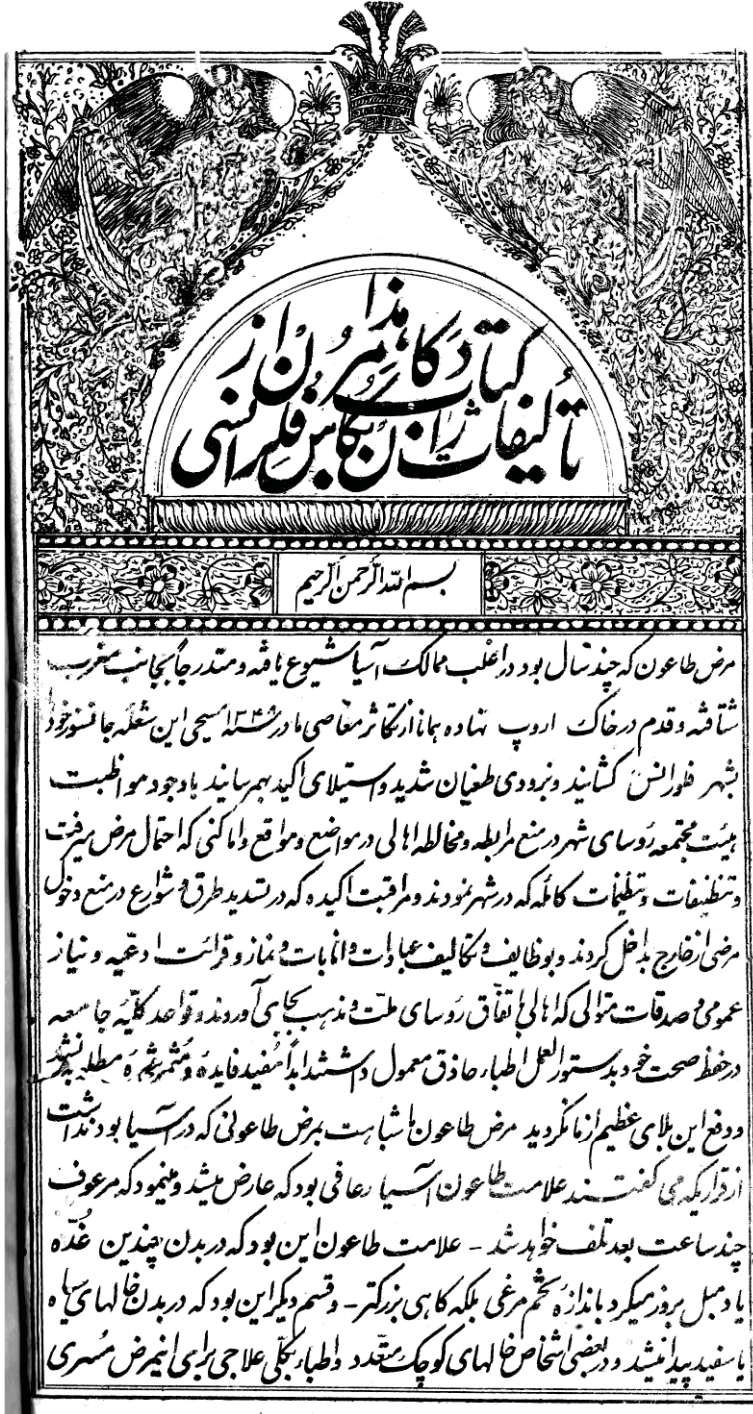 هذا
کتاب دکامرون از
تألیفات ژان بکاس فلرانسی
بسم الله الرحمن الرحیم
مرض طاعون که چند سال بود در اغلب ممالک آسیا شیوع یافته و متدرجاً بجانب مغرب
شتافته و قدم در خاک اروپ نهاده همانا از تکاثر معاصی ما در سنه ۱۳۴۸ مسیحی این شعله جانسوز خود
بشهر فلورانس کشانید و بزودی طغیان شدید و استیلای اکید بهم رسانید با وجود مواظبت
هیئت مجتمعه رؤسای شهر در منع مرابطه و مخالطه اهالی در مواضع و مواقع و اماکنی که احتمال مرض میرفت
و تنظیفات و تنظیمات کامله که در شهر نمودند و مراقبت اکیده که در تسدید طرق و شوارع در منع دخول
مرضی از خارج بداخل کردند و بوظایف و تکالیف عبادات و انابات و نماز و قرائت ادعیه و نیاز
عمومی و صدقات متوالی که اهالی باتفاق رؤسای ملت و مذهب بجای آوردند و قواعد کلیه جامعه
در حفظ صحت خود بدستور العمل اطباء حاذق معمول داشتند ابداً مفید فایده و مثمر ثمره مطلب نشد
و دفع این بلای عظیم از ما نگردید مرض طاعون ما شباهت بمرض طاعونی که در آسیا بود نداشت
از قراریکه می گفتند علامت طاعون آسیا رعافی بود که عارض میشد و مینمود که مرعوف
چند ساعت بعد تلف خواهد شد – علامت طاعون این بود که در بدن چندین غده
یا دمبل بروز میکرد باندازه تخم مرغی بلکه کاهی بزرکتر – و قسم دیکر این بود که در بدن خالهای سیاه
یا سفید پیدا میشد و در بعضی اشخاص خالهای کوچک متعدد و اطباء بکلی علاجی برای اینمرض مسری